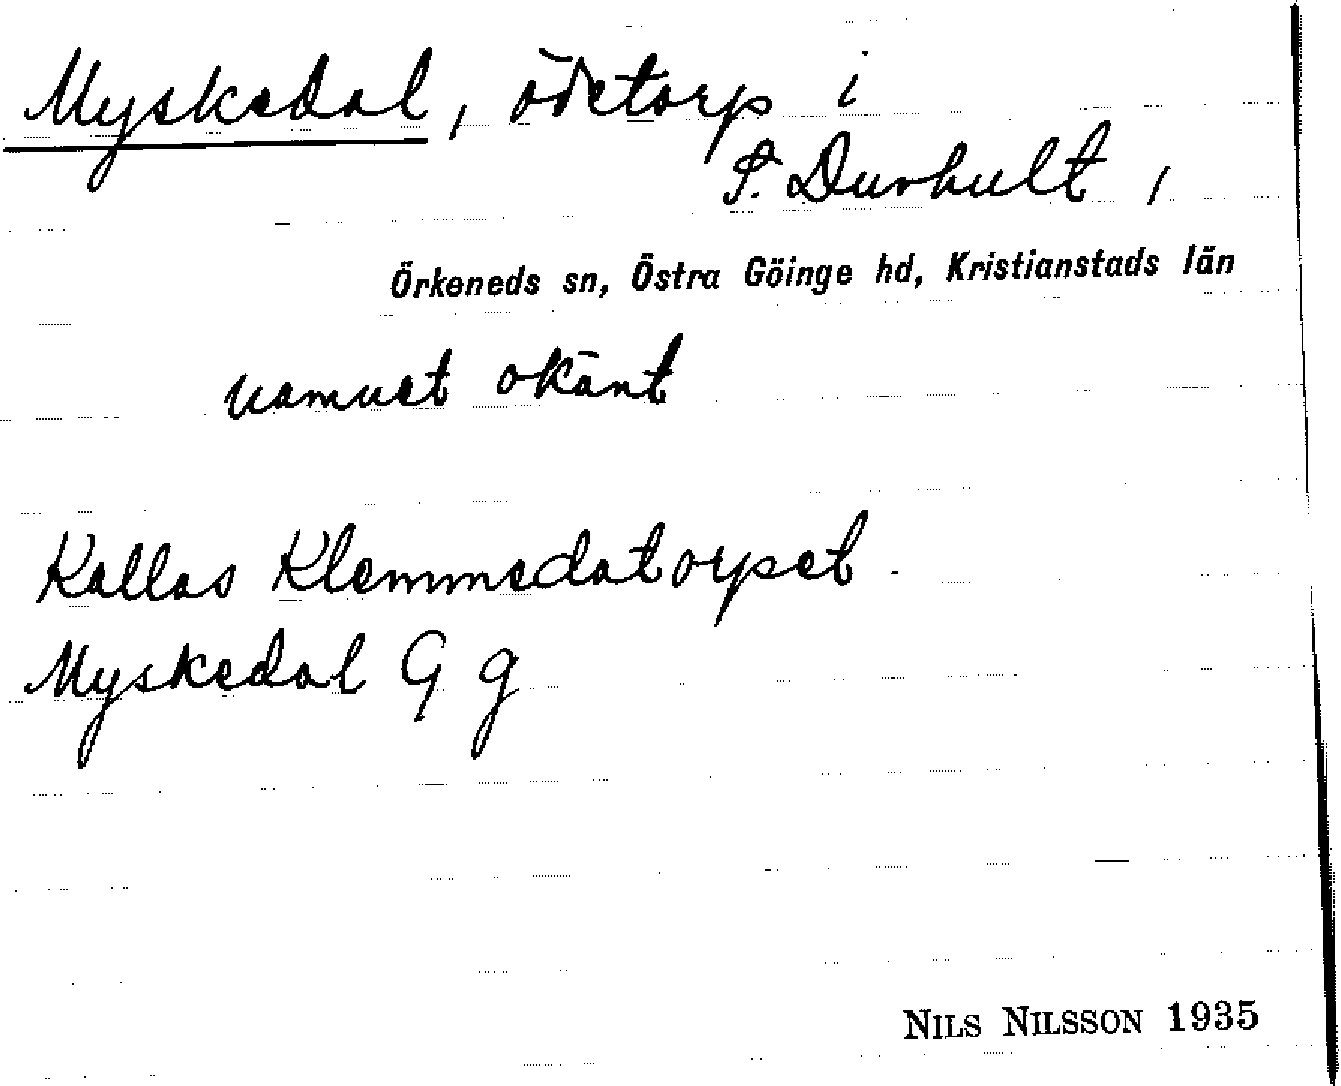 Myskedal, ödetorp i
S. Duvhult,
Örkeneds sn, Östra Göinge hd, Kristianstads län
namnet okänt
Kallas Klemmedatorpet.
Myskedal G g
NILS NILSSON 1935